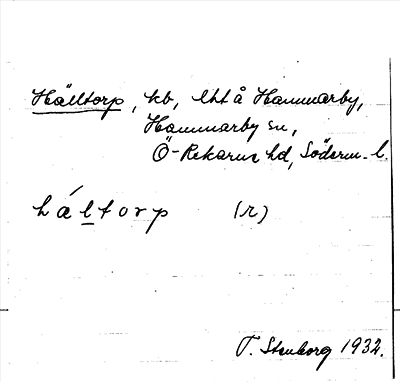 Hälltorp, kb, lht å Hammarby,
Hammarby sn,
Ö-Rekarne hd, Söderm. l.
háltorp (r)
T. Stenborg 1932.